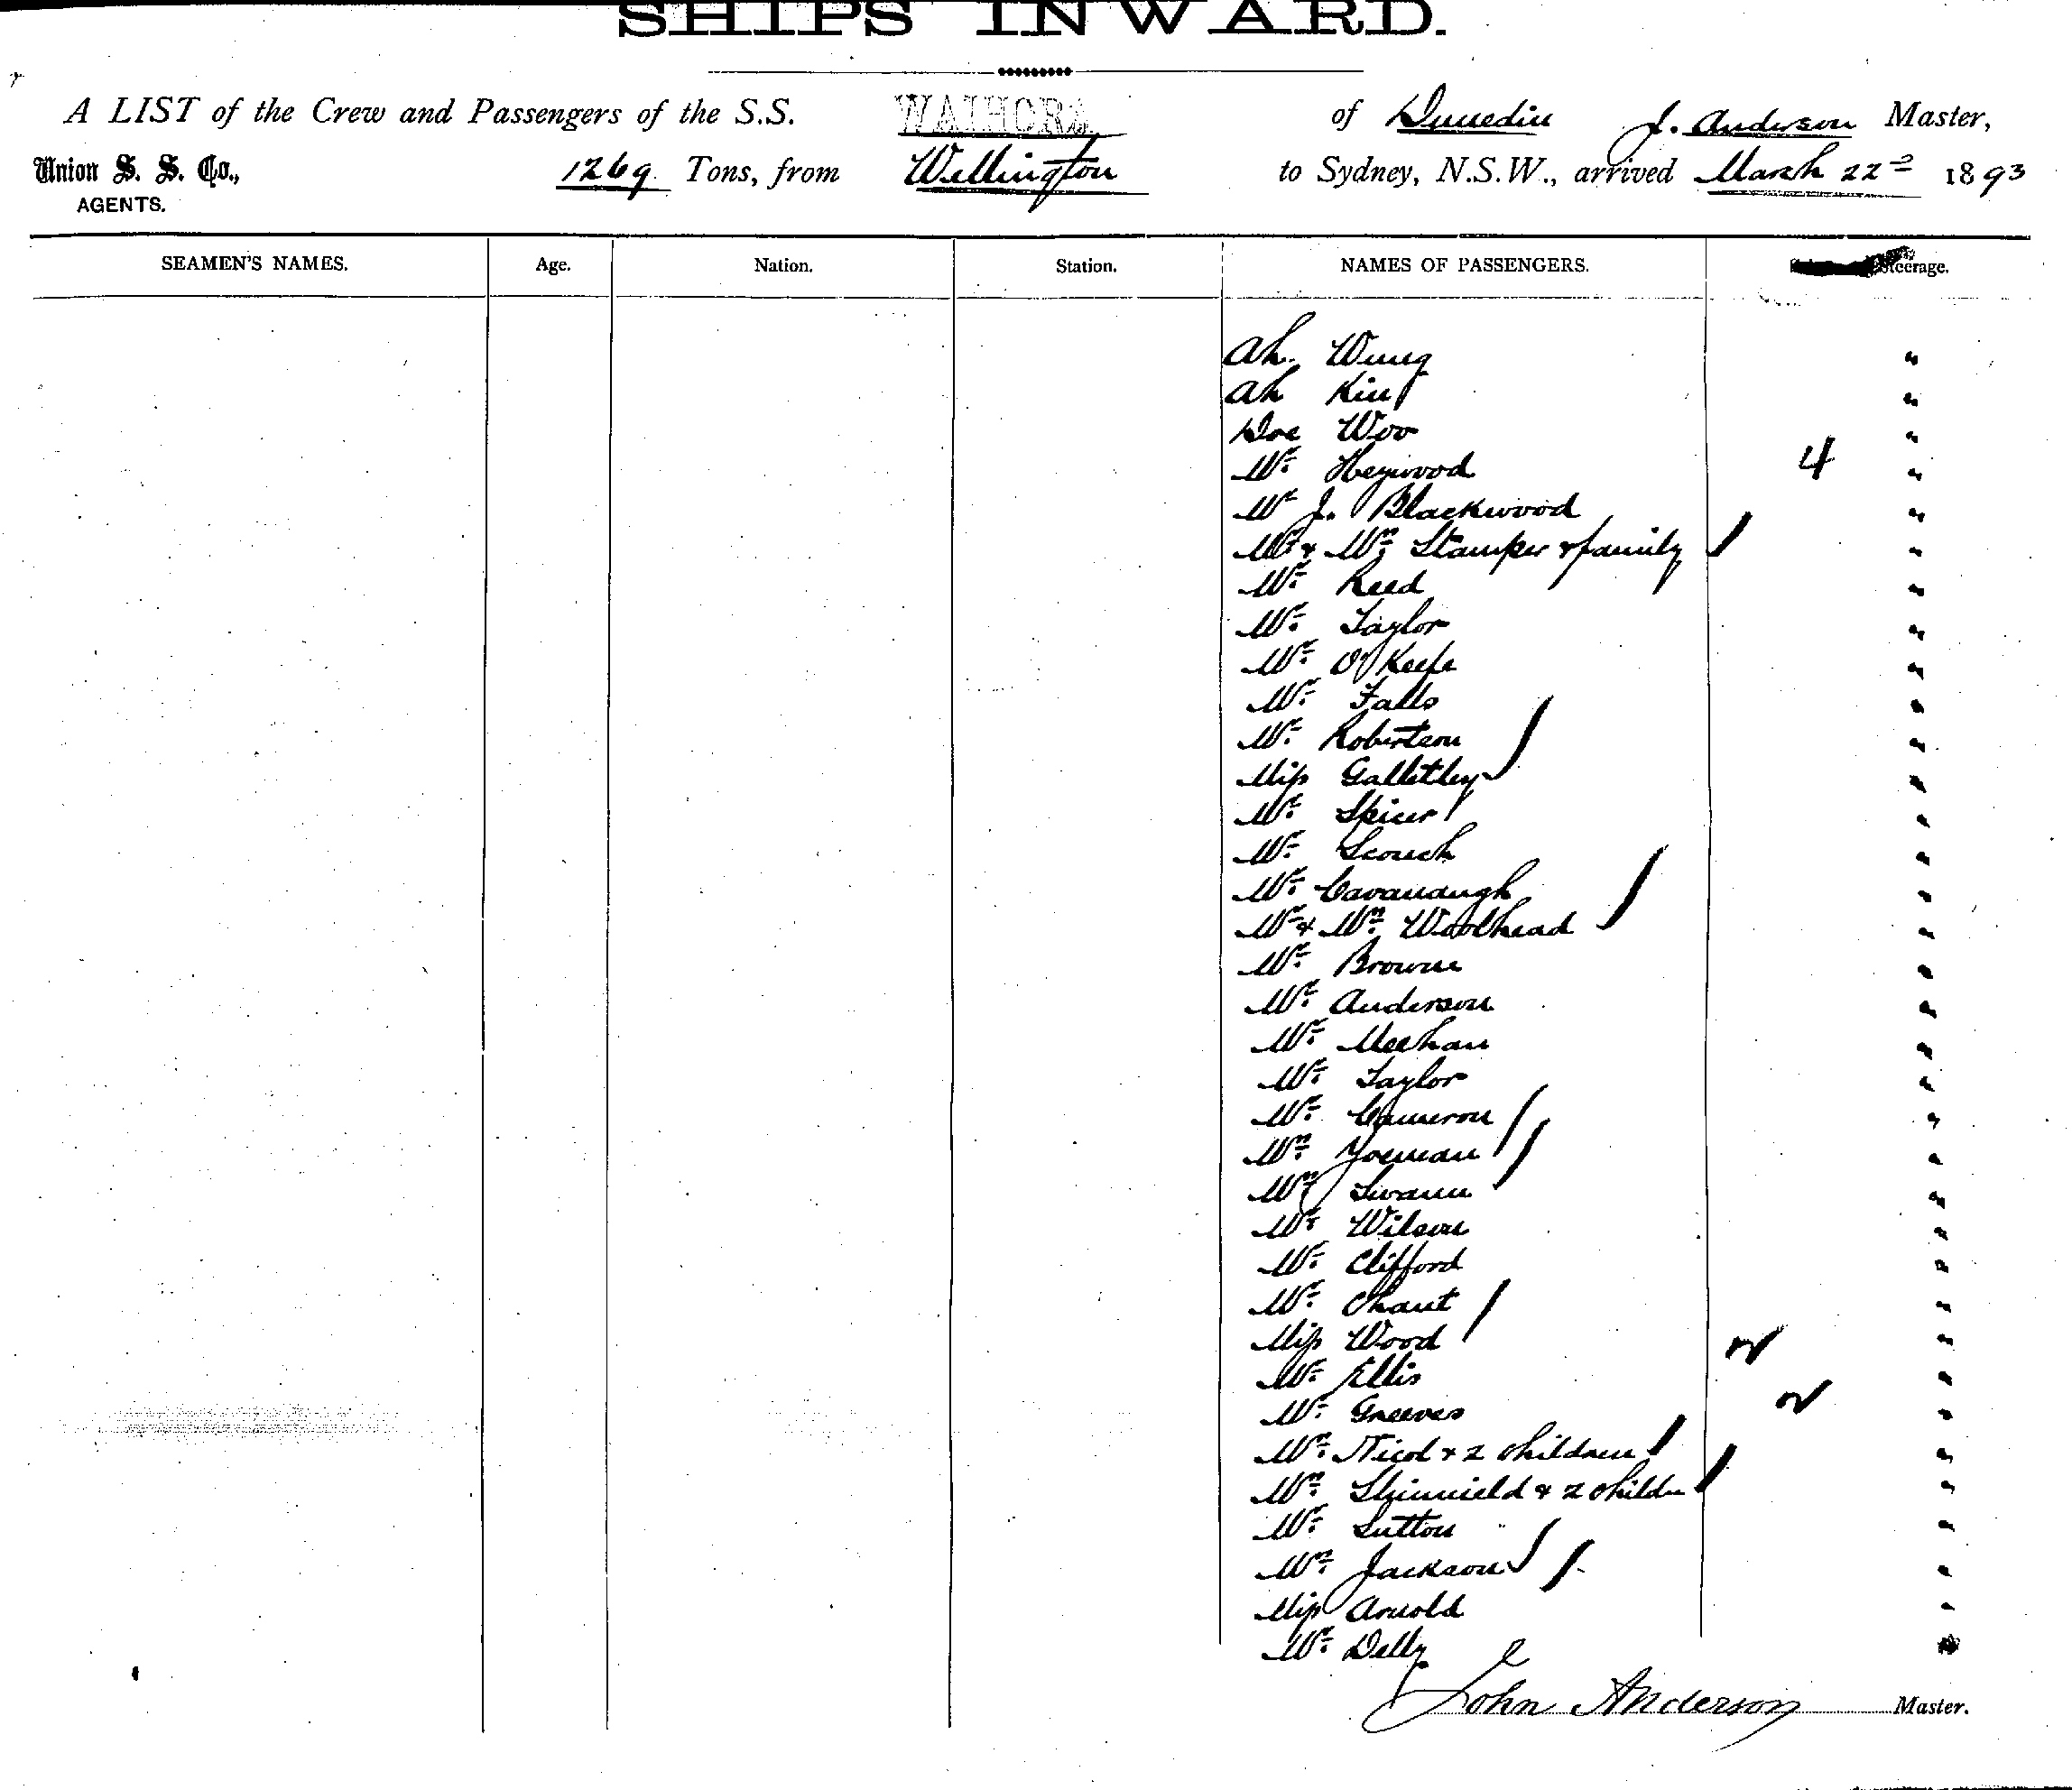 SHIPS INWARD.
A LIST of the Crew and Passengers of the S.S. WAIHORA of Dunedin J. Anderson Master,
Union S. S. Co., 1269 Tons, from Wellington to Sydney, N.S.W., arrived March 22d 1893
AGENTS.
SEAMEN'S NAMES. Age. Nation. Station. NAMES OF PASSENGERS. Steerage.
Ah Wung "
Ah King "
Woo "
Mr Heywood 4 "
Mr J. Blackwood "
Mr & Mrs Stamper & family "
Mr Reed "
Mr Taylor "
Mr O'Keefe "
Mr Falls "
Mr Robertson "
Miss Galletley "
Mr Spicer "
Mr "
Mr Cavanaugh "
Mr & Mrs Woolhead "
Mr Browne "
Mr Anderson "
Mr Meehan "
Mr Taylor "
Mr Cameron "
Mrs Yoeman "
Mr Swann "
Mr Wilson "
Mr Clifford "
Mr Chant "
Miss Wood "
Mr Ellis "
Mr Greeves "
Mrs Nicol & 2 children "
Mrs & 2 childn "
Mr Sutton "
Mrs Jackson "
Miss Arnold "
Mr "
John Anderson Master.